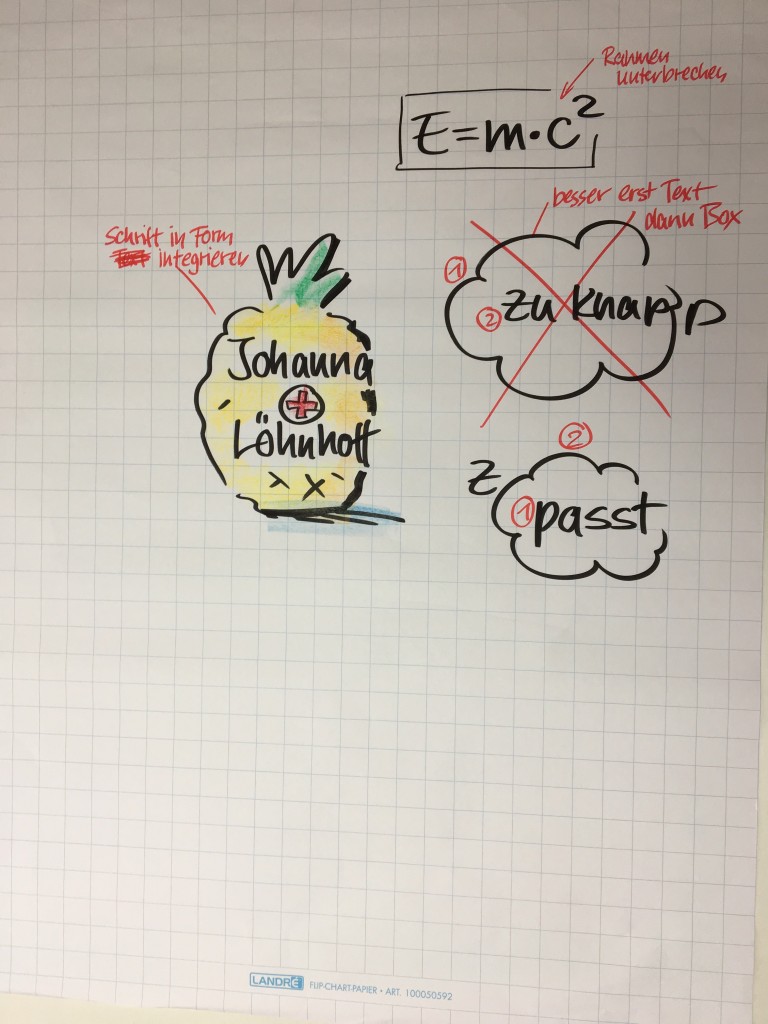 Rahmen
unterbrechen
E=m·c²
besser erst Text
dann Box
Schrift in Form
integrieren
1
2 zu knapp
Johanna
Löhnhoff
2
Z
1 passt
LANDRÉ FLIP-CHART-PAPIER • ART. 100050592